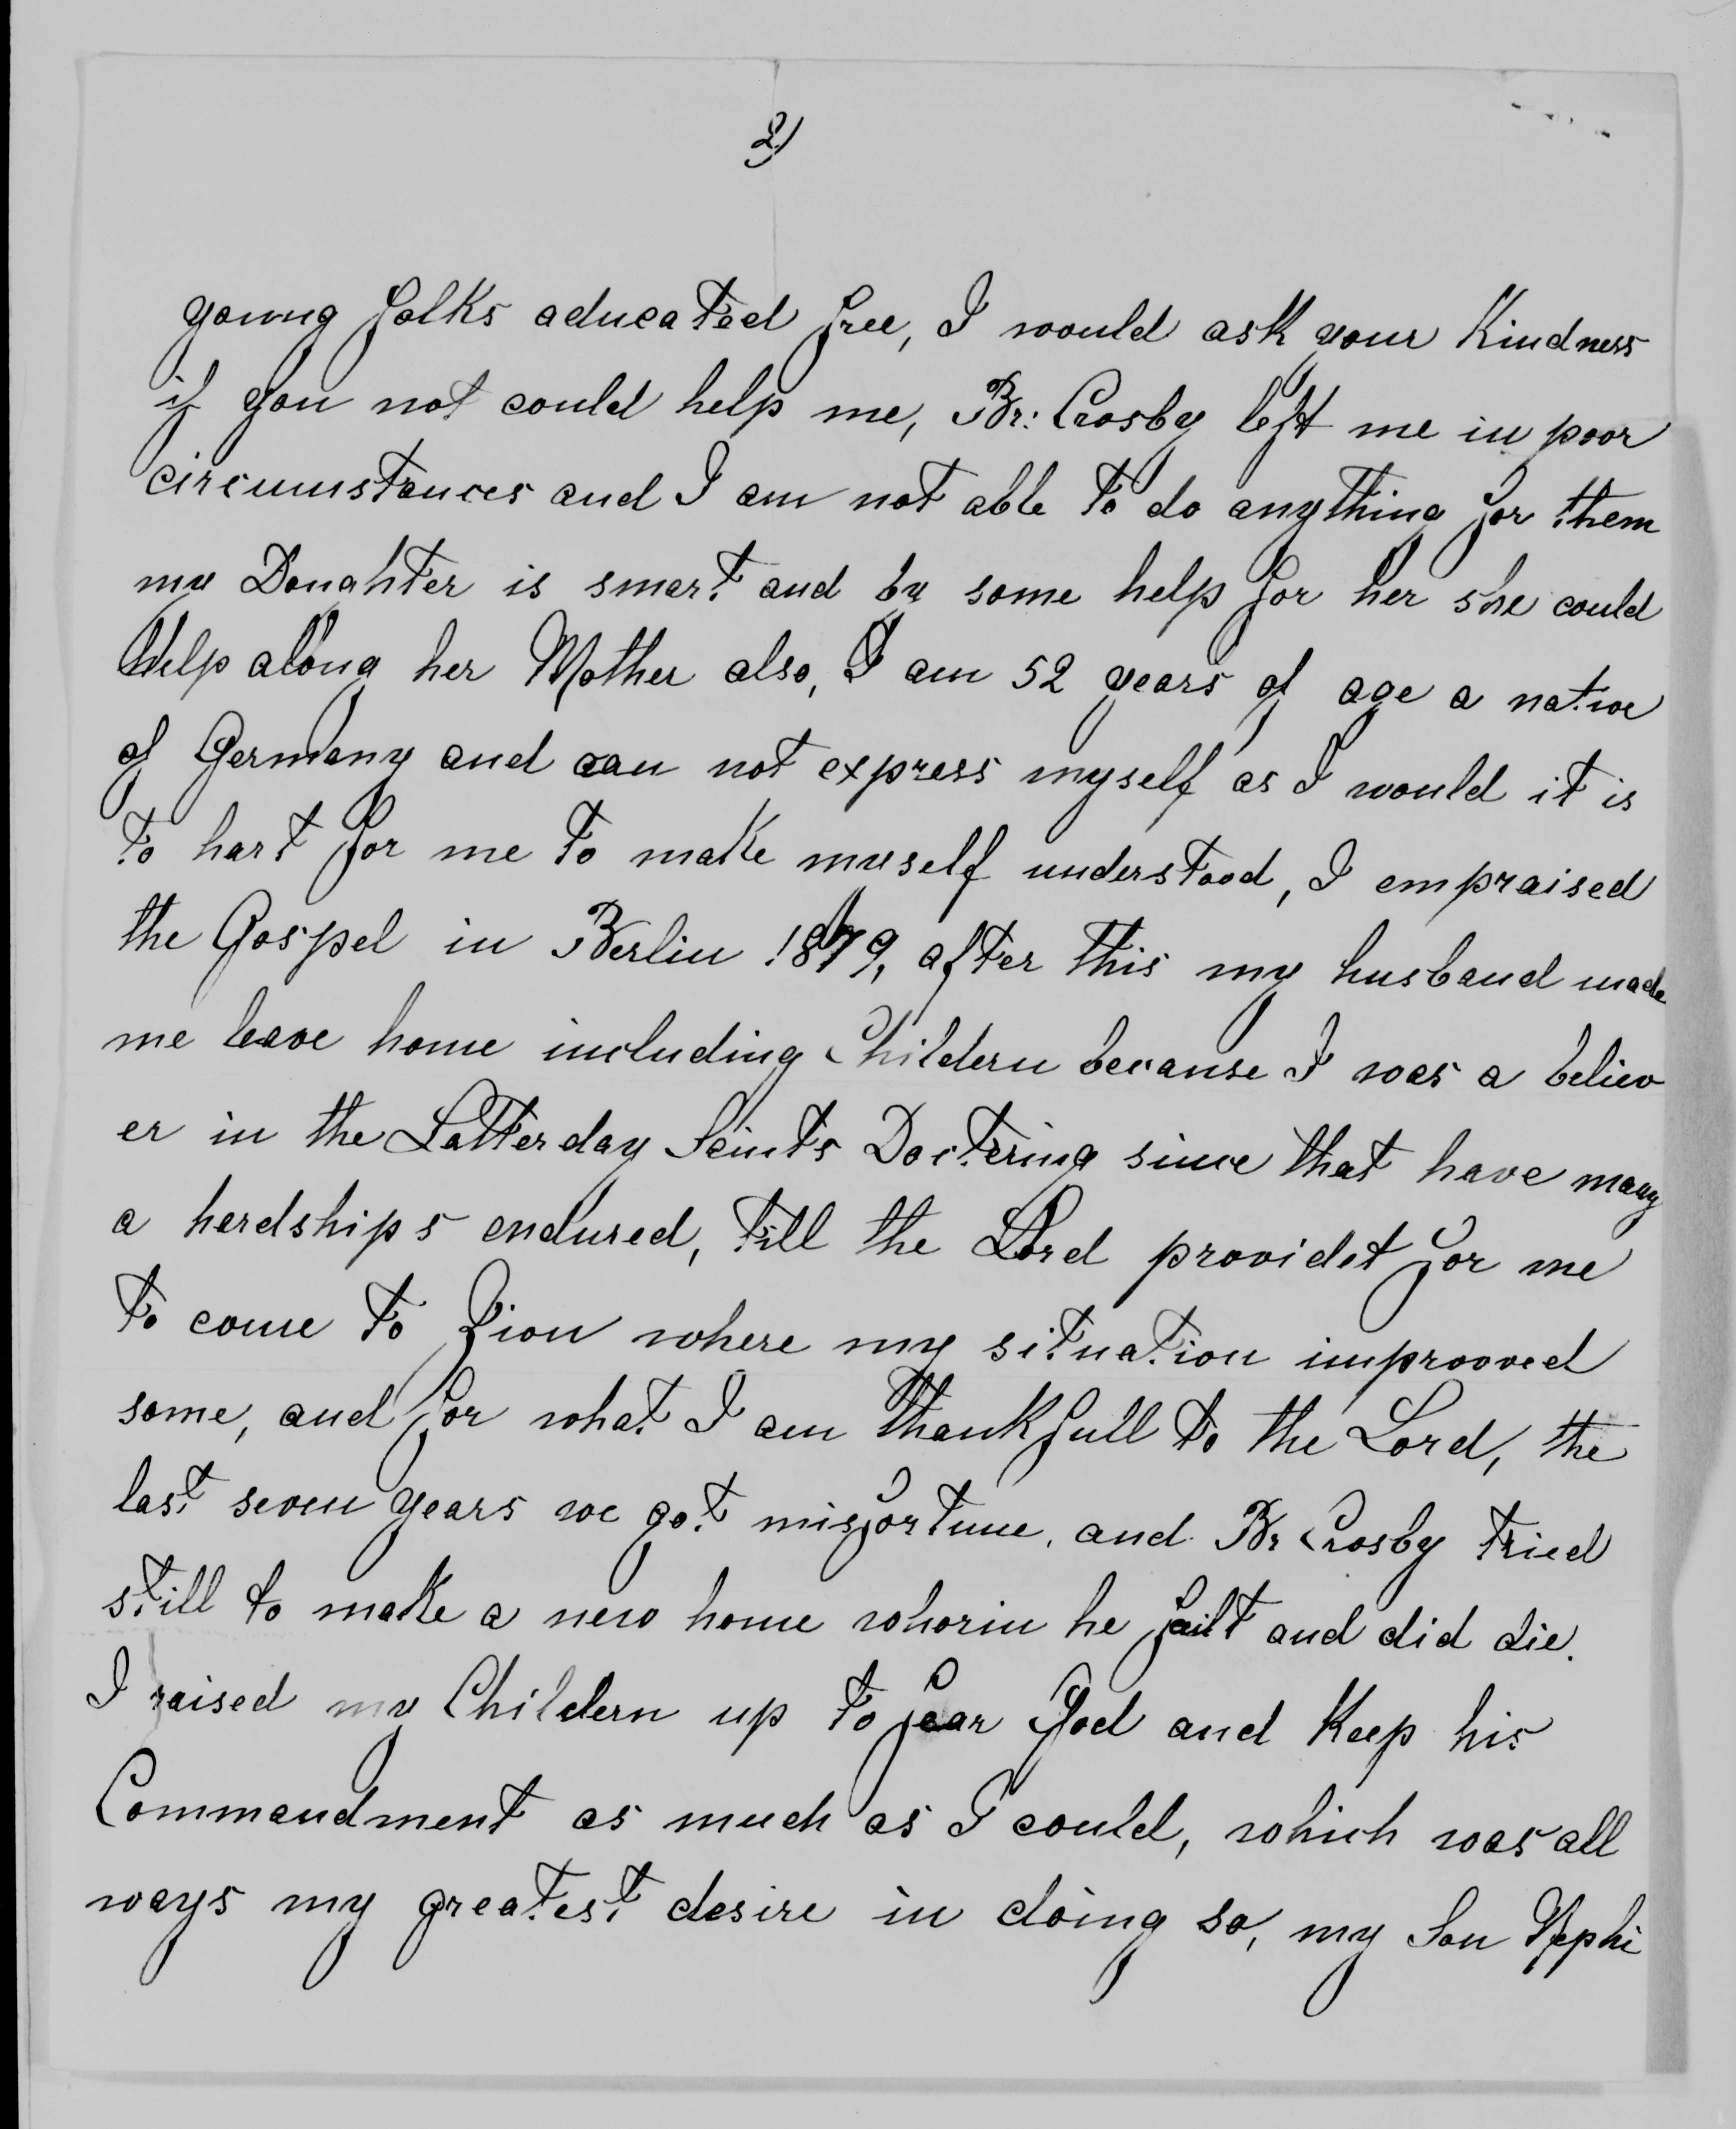 2)
young folks aducated free, I would ask your Kindness
if you not could help me, Br: Crosby left me in poor
circumstances and I am not able to do anything for them
my Doughter is smart and by some help for her she could
Help along her Mother also, I am 52 years of age a native
of Germany and can not express myself as I would it is
to hart for me to make myself understood, I empraised
the Gospel in Berlin 1879, after this my husband made
me leave home including Childern because I was a believ
er in the Latterday Seints Doctering since that have many
a herdships endured, till the Lord providet for me
to come to Zion where my situation improoved
some, and for what I am thankfull to the Lord, the
last seven years we got misfortune, and Br Crosby tried
still to make a new home whorin he failt and did die.
I raised my Childern up to fear God and Keep his
Commandment as much as I could, which was all
ways my greatest desire in doing so, my Son Nephi